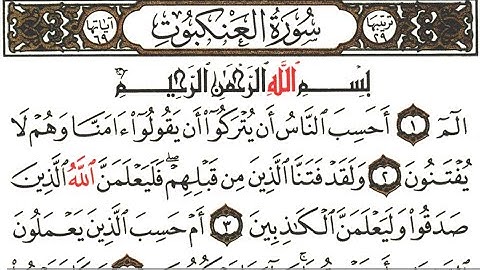 ترتيبها ٢٩ سُورَةُ العَنكبوتِ آياتها ٦٩
بِسْمِ ٱللَّهِ ٱلرَّحْمَٰنِ ٱلرَّحِيمِ
الٓمٓ ١ أَحَسِبَ ٱلنَّاسُ أَن يُتْرَكُوٓا۟ أَن يَقُولُوٓا۟ ءَامَنَّا وَهُمْ لَا
يُفْتَنُونَ ٢ وَلَقَدْ فَتَنَّا ٱلَّذِينَ مِن قَبْلِهِمْ ۖ فَلَيَعْلَمَنَّ ٱللَّهُ ٱلَّذِينَ
صَدَقُوا۟ وَلَيَعْلَمَنَّ ٱلْكَٰذِبِينَ ٣ أَمْ حَسِبَ ٱلَّذِينَ يَعْمَلُونَ